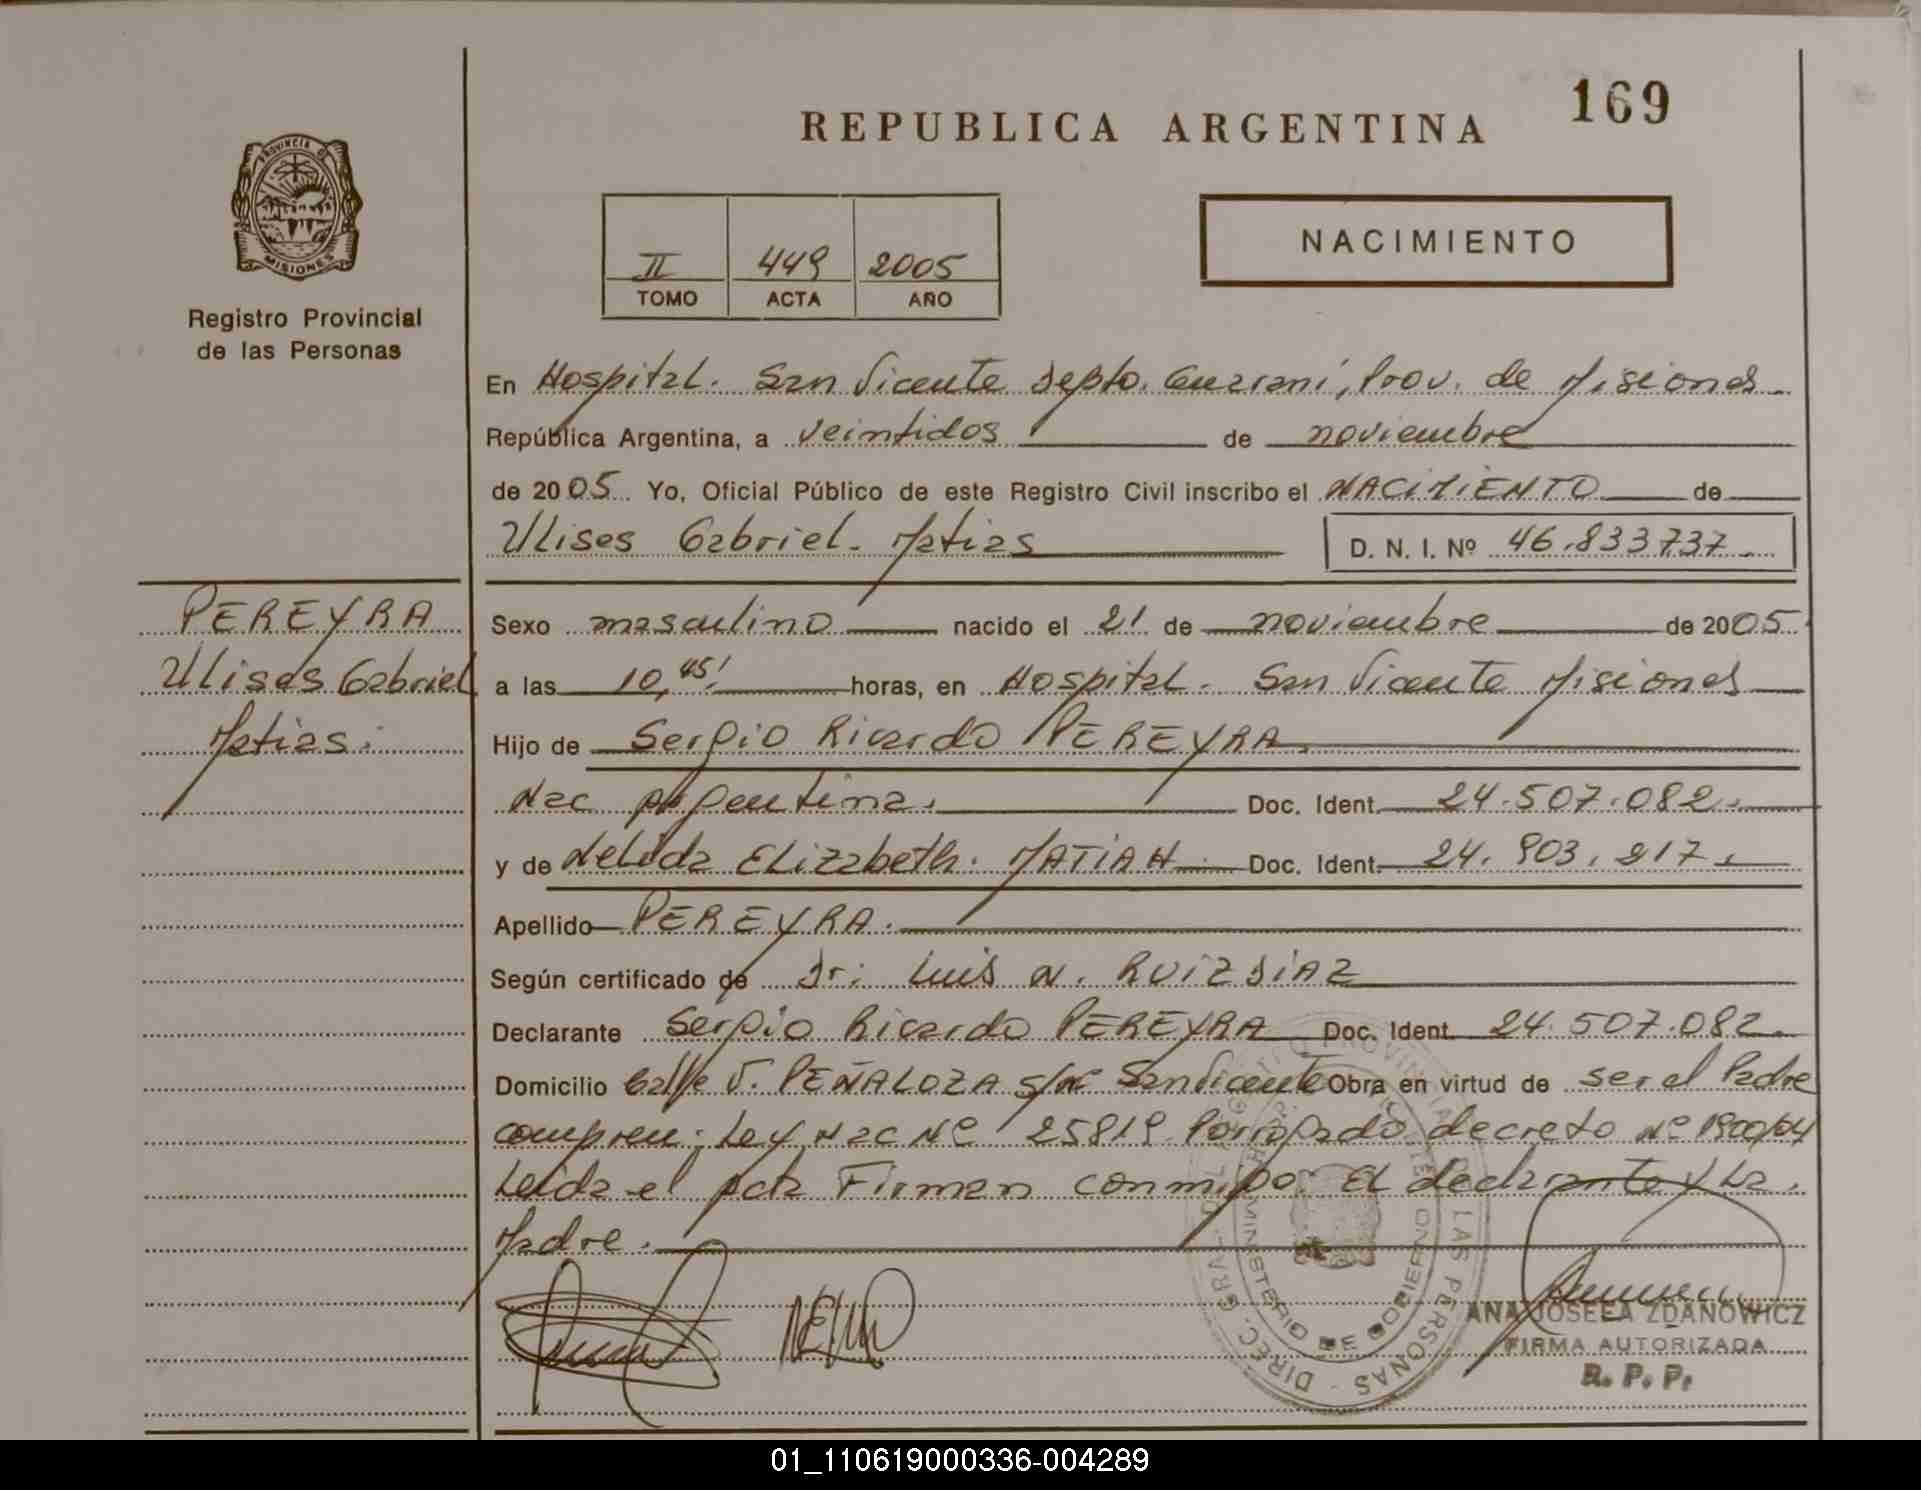 169
REPUBLICA ARGENTINA
PROVINCIA DE
MISIONES
Registro Provincial
de las Personas
II 449 2005
TOMO ACTA AÑO
NACIMIENTO
En Hospital. San Vicente Depto. Guarani, Prov. de Misiones
República Argentina, a veintidos de noviembre
de 2005 Yo, Oficial Público de este Registro Civil inscribo el NACIMIENTO de
Ulises Gabriel. Matias D. N. I. Nº 46.833737
PEREYRA
Ulises Gabriel
Matias.
Sexo masculino nacido el 21 de noviembre de 2005
a las 10,45' horas, en Hospital. San Vicente Misiones
Hijo de Sergio Ricardo PEREYRA
Nac Argentina. Doc. Ident. 24.507.082.
y de Nelida Elizabeth. Doc. Ident. 24.903.217.
Apellido PEREYRA.
Según certificado de Dr: Luis N. RUIZ DIAZ
Declarante Sergio Ricardo PEREYRA Doc. Ident. 24.507.082.
Domicilio Calle V. PEÑALOZA s/nº San Vicente Obra en virtud de ser el Padre
compren. Ley Nac Nº 25819 Porrogado decreto Nº 1900/04
Leida el Acta Firman conmigo el declarante y La
Madre.
DIREC. GRAL. DEL REGISTRO PROVINCIAL DE LAS PERSONAS
MINISTERIO DE GOBIERNO
ANA JOSEFA ZDANOWICZ
FIRMA AUTORIZADA
R. P. P.
01_110619000336-004289